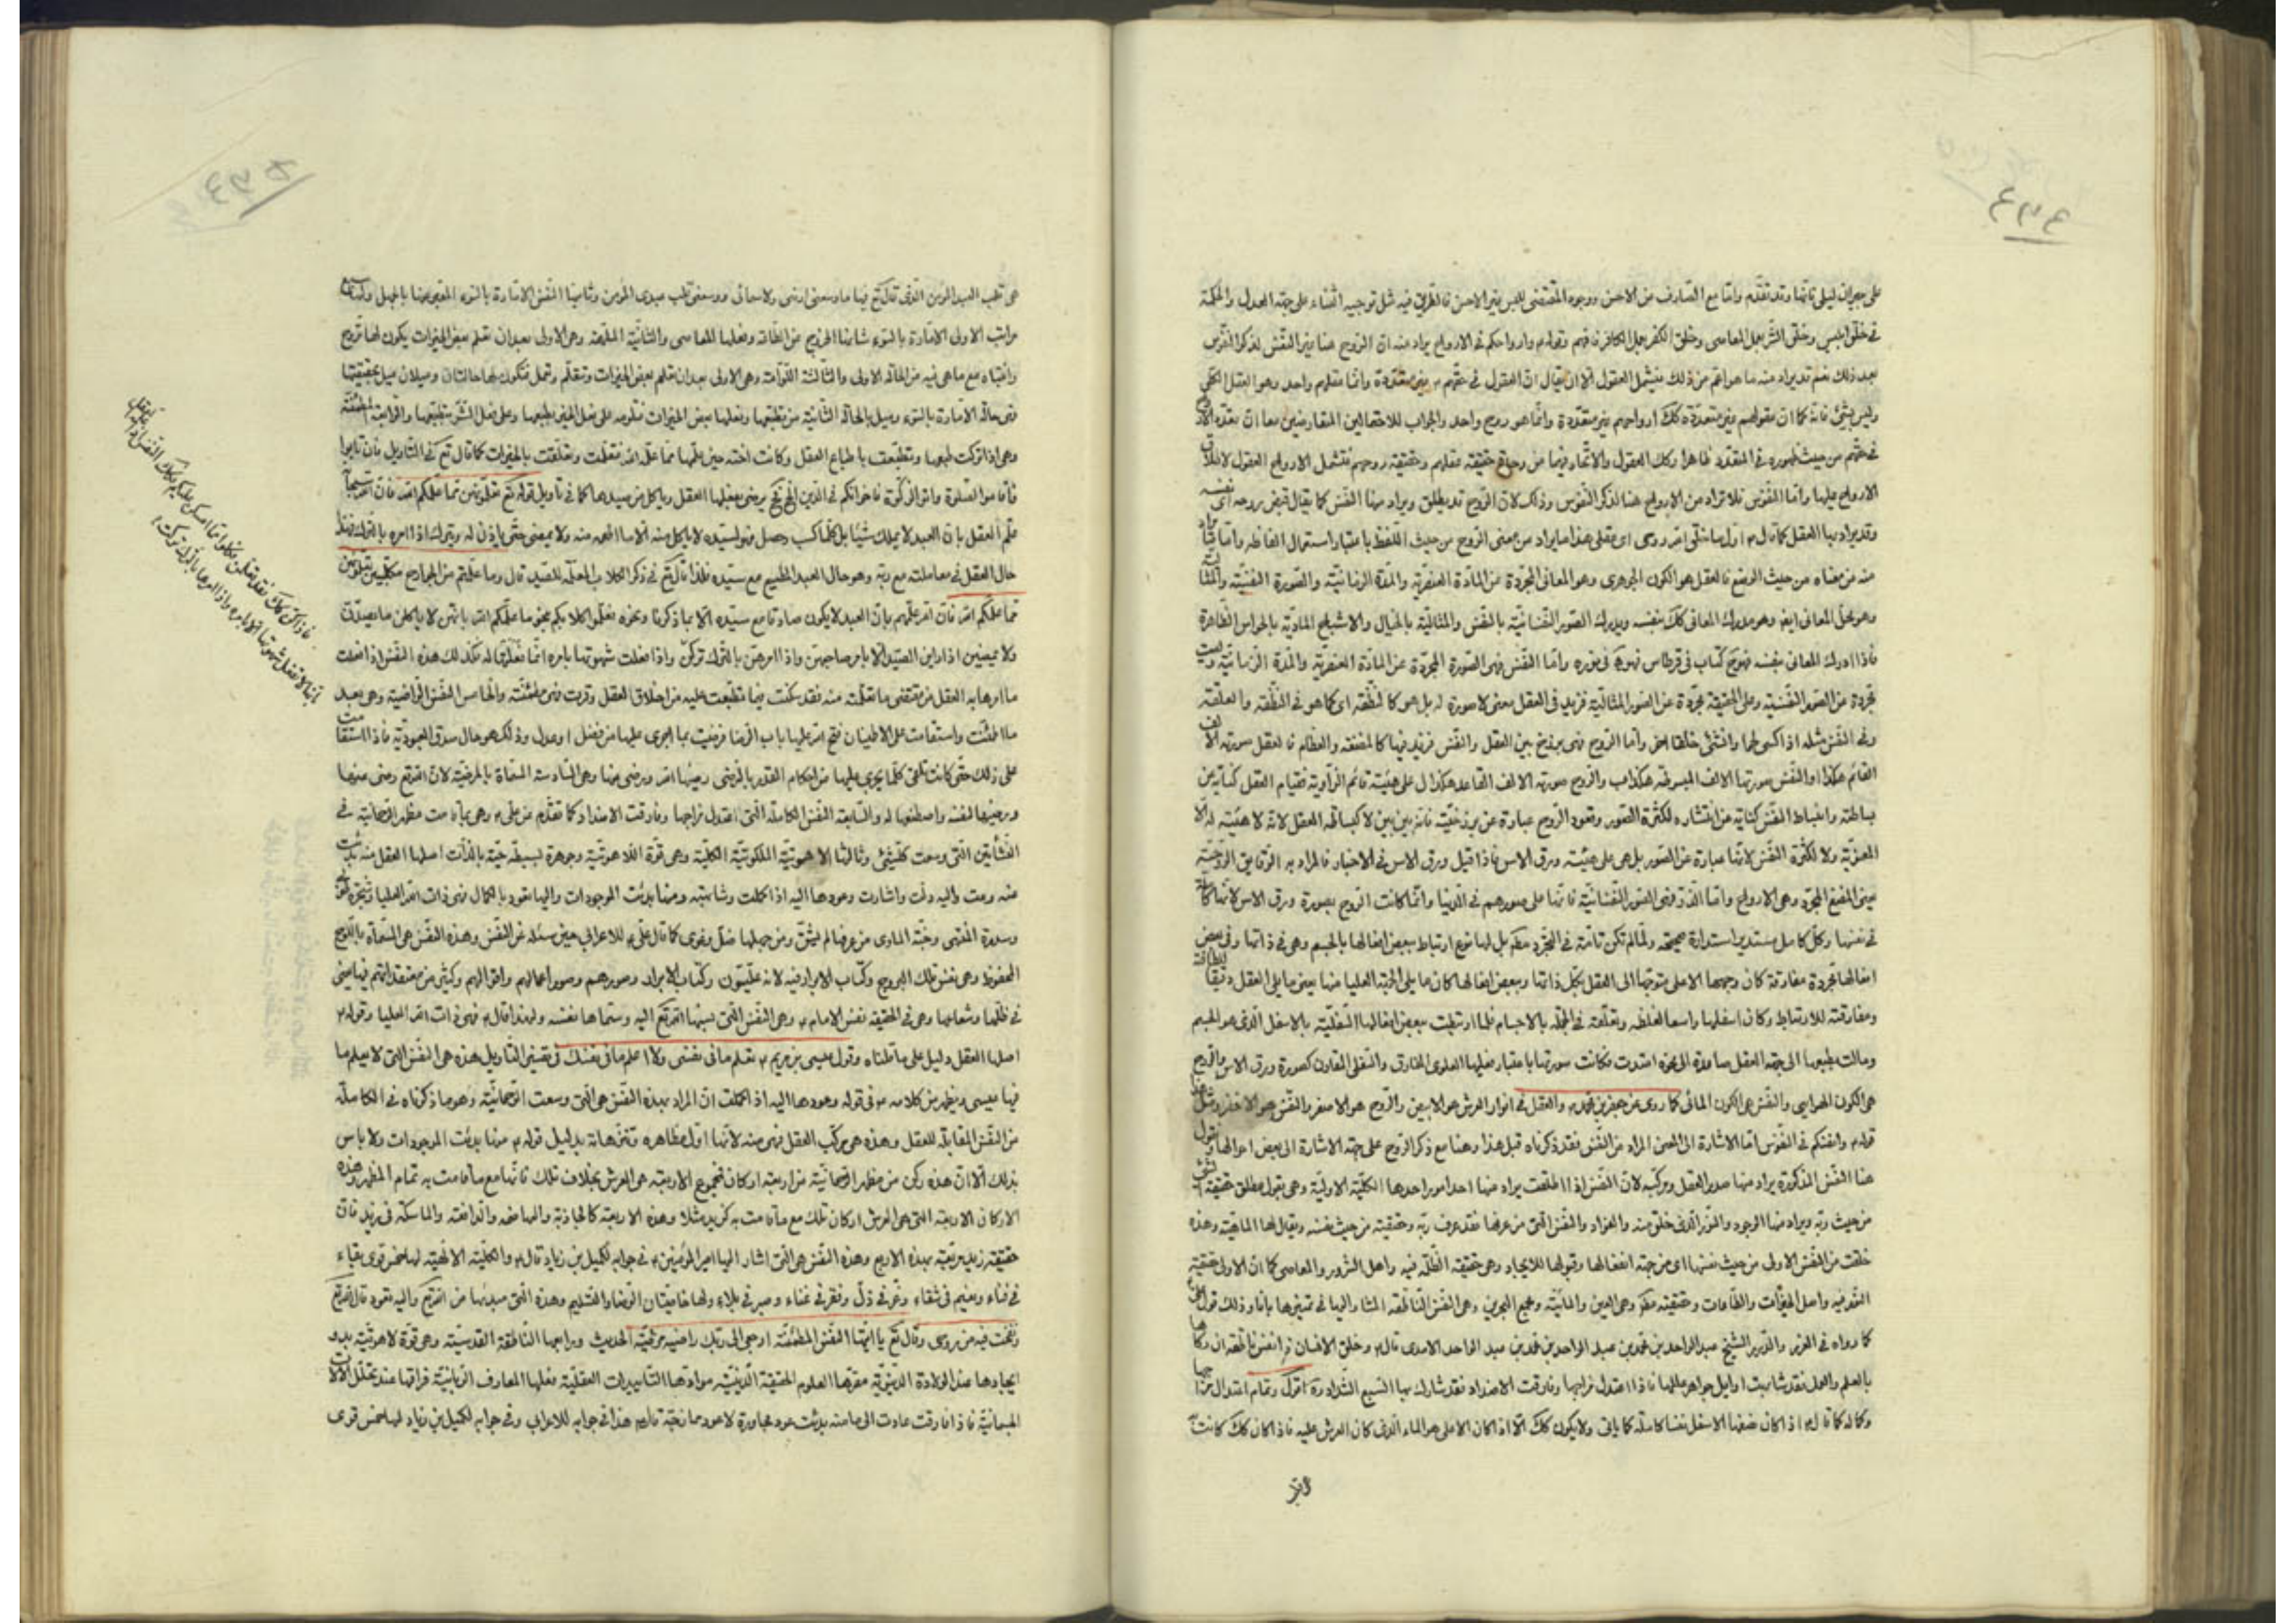 ٤٣٤
على جيران ليلى فانها وقد تقدم واما مع الصارف من الاحسن ووجود المقتضى للبس بغير الاحسن فالطريق فيه مثل توجيه الثناء على جهة العدل والحكمة
في خلق ابليس وخلق الشر بعمل المعاصى وخلق الكفر بعمل الكافر فافهم وقوله وارواحكم في الارواح يراد منه ان الروح هنا غير النفس لذكر النفوس
بعد ذلك نعم قد يراد منه ما هو اعم من ذلك فيشمل العقول الا ان يقال ان العقول في حقهم غير متعددة وانما عقلهم واحد وهو العقل الكلى
وليس بشىء فانه كما ان عقولهم غير متعددة كك ارواحهم غير متعددة وانما هو روح واحد والجواب للاحتمالين المتعارضين معا ان تعدد
في حقهم من حيث ظهوره في المتعدد ظاهرا وكك العقول والاتحاد فيهما من وحدة حقيقة عقلهم وحقيقة روحهم فتشمل الارواح العقول لاطلاق
الارواح عليها واما النفوس فلا تراد من الارواح هنا لذكر النفوس وذلك لان الروح قد يطلق ويراد منها النفس كما يقال قبض روحه اى نفسه
وقد يراد بها العقل كما قال اول ما خلق الله روحى اى عقلى هذا ما يراد من معنى الروح من حيث اللفظ باعتبار استعمال الفاظه واما
منه من معناه من حيث الوضع فالعقل هو الكون الجوهرى وهو المعانى المجردة عن المادة العنصرية والمدة الزمانية والصورة النفسية والمثالية
وهو محل المعانى ايضا وهو مدرك المعانى كك بنفسه ويدرك الصور النفسانية بالنفس والمثالية بالخيال والاشباح المادية بالحواس الظاهرة
فاذا ادرك المعانى بنفسه فهو ح كتاب في قرطاس فهو فى نوره واما النفس فهى الصورة المجردة عن المادة العنصرية والمدة الزمانية وليست
مجردة عن الصور النفسية وعلى الحقيقة مجردة عن الصور المثالية فزيد في العقل معنى لا صورة له بل هو كالنطفة اى كما هو في النطفة والعلقة
وفى النفس مثله اذا اكسى لحما وانشئ خلقا اخر واما الروح فهى برزخ بين العقل والنفس فزيد فيها كالمضغة والعظام فالعقل صورته الالف
القائم هكذا ا والنفس صورتها الالف المبسوطة هكذا ب والروح صورته الالف القاعد هكذا ل على هيئة قائم الزاوية فقيام العقل كناية عن
بساطته وانبساط النفس كناية عن انتشاره لكثرة الصور وقعود الروح عبارة عن برزخيته فانه بين بين لا كبساطة العقل لانه لا هيئة له الا
المعنوية ولا لكثرة النفس لانها عبارة عن الصور بل هى على هيئته ورق الاس فاذا قيل ورق الاس في الاخبار فالمراد به الرقايق الروحية
يعنى المضغ المجرد وهى الارواح واما الذر فهى الصور النفسانية فانها على صورهم في الدنيا وانما كانت الروح بصورة ورق الاس لانها
في نفسها وكل كامل مستدير استدارة صحيحة ولما لم تكن تامة في التجرد بل لها نوع ارتباط ببعض افعالها بالجسم وهى في ذاتها وفى بعض
افعالها مجردة مفارقة كان وجهها الاعلى متوجها الى العقل بكل ذاتها وببعض افعالها كان ما يلى الجهة العليا منها يعنى ما يلى العقل دقيقا
ومفارقته للارتباط وكان اسفلها واسعا لغلظه وتعلقه في الجملة بالاجسام فلما ارتبطت ببعض افعالها السفلية بالاسفل الذى هو الجسم
ومالت بطبعها الى جهة العقل صاعدة الى امتدت فكانت صورتها باعتبار فعليها العلوى المفارق والسفلى المقارن كصورة ورق الاس فالروح
هى الكون الهوائى والنفس هى الكون المائى كما روى عن جعفر بن محمد والعقل في انوار العرش هو الابيض والروح هو الاصفر والنفس هو الاخضر ومثل
قوله وانفسكم في النفوس اما الاشارة الى المعنى المراد من النفس فقد ذكرناه قبل هذا وهنا مع ذكر الروح على جهة الاشارة الى بعض احوالها ونقول
هنا النفس المذكورة يراد منها صدر العقل ومركبه لان النفس اذا اطلقت يراد منها احد امور احدها الكلية الاولية وهى بقول مطلق حقيقة الشىء
من حيث ربه ويراد منها الوجود والنور الذى خلق منه والفؤاد والنفس التى من عرفها فقد عرف ربه وحقيقته من حيث نفسه ويقال لها الماهية وهذه
خلقت من النفس الاولى من حيث نفسها اى من جهة انفعالها وقبولها للايجاد وهى حقيقة الظلمة فيه واصل الشرور والمعاصى كما ان الاولى حقيقة
النور فيه واصل الخيرات والطاعات وحقيقته وهى العين والمائية ومجمع البحرين وهى النفس الناطقة المشار اليها في تمييزها بانا وذلك قول على
كما رواه في الغرر والدرر الشيخ عبد الواحد بن محمد بن عبد الواحد بن محمد بن عبد الواحد الامدى قال وخلق الانسان ذا نفس ناطقة ان زكاها
بالعلم والعمل فقد شابهت اوايل جواهر عللها فاذا اعتدل مزاجها وفارقت الاضداد فقد شارك بها السبع الشداد اقول وتمام اعتدال مزاجها
وكما له كما قال اذ كان نصفها الاسفل نفسا كاملة كما ياتى ولا يكون كك الا اذا كان الاعلى هو الماء الذى كان العرش عليه فاذا كان كك كانت
هى قلب العبد المؤمن الذى قال تع فيها ما وسعنى ارضى ولا سمائى ووسعنى قلب عبدى المؤمن وثانيها النفس الامارة بالسوء المعبر عنها بالجهل ولها سبع
مراتب الاولى الامارة بالسوء شانها الخروج عن الطاعة وفعلها المعاصى والثانية الملهمة وهى الاولى بعد ان تعلم بعض الخيرات يكون لها تروح
وانتباه مع ما هى فيه من الحالة الاولى والثالثة اللوامة وهى الاولى بعد ان تعلم بعض الخيرات وتتعلم وتعمل فتكون لها حالتان وميلان ميل بحقيقتها
وهى حالة الامارة بالسوء وميل بالحالة الثانية من تطبعها وفعلها ببعض الخيرات فتلومه على فعل الخير بطبعها وعلى فعل الشر بتطبعها والرابعة المطمئنة
وهى اذا تركت طبعها وتطبعت بطباع العقل وكانت اخته حين علمها مما علمه الله فتعلمت وتخلقت بالخيرات كما قال تع في التاويل فان تابوا
واقاموا الصلوة واتوا الزكوة فاخوانكم في الدين يعنى بفعلها العقل وياكل من صيدها كما في تاويل قوله تع تعلمونهن مما علمكم الله فان الله سبحانه
علم العقل بان العبد لا يملك شيئا بل كلما كسب وحصل فهو لسيده لا ياكل منه الا ما اطعمه منه ولا يمضى حتى ياذن له ويترك اذا امره بالترك فهذا
حال العقل في معاملته مع ربه وهو حال العبد المطيع مع سيده فلذا قال تع في ذكر الكلاب المعلمة للصيد قال وما علمتم من الجوارح مكلبين تعلمونهن
مما علمكم الله فان الله علمهم بان العبد لا يكون صادقا مع سيده الا بما ذكرنا ونحوه فعلموا كلابكم بنحو ما علمكم الله بانهن لا ياكلن ما يصدن
ولا يمضين اذا راين الصيد الا بامر صاحبهن واذا امرهن بالترك تركن واذا فعلت شهوتها بامره انما تعلق له فكذلك هذه النفس اذا فعلت
ما امرها به العقل من مقتضى ما تعلمت منه فقد سكنت فيما تطبعت عليه من اخلاق العقل وقرت فهى مطمئنة والخامس النفس الراضية وهى بعد
ما اطمئنت واستقامت على الاطمينان فتح الله عليها باب الرضا فرضيت بما اجرى عليها من فضل او عدل وذلك هو حال صدق العبودية فاذا استقامت
على ذلك حتى كانت تلقى كلما يجرى عليها من احكام القدر بالرضى رضيها الله ورضى عنها وهى السادسة المسماة بالمرضية لان الله تع رضى عنها
ورضيها لنفسه واصطنعها له والسابعة النفس الكاملة التى اعتدل مزاجها وفارقت الاضداد كما تقدم عن على وهى بما قامت مظهر الرحمانية في
النشاتين التى وسعت كل شىء وثالثها الاهوتية الملكوتية الكلية وهى قوة اللاهوتية وجوهرة بسيطة حية بالذات اصلها العقل منه بدئت
منه وعت واليه دلت واشارت وعودها اليه اذا كملت وشابهته ومنها بدئت الموجودات واليها تعود بالكمال فهى ذات الله العليا وشجرة طوبى
وسدرة المنتهى وجنة الماوى من عرفها لم يشق ومن جهلها ضل وغوى كما قال على للاعرابى حين سئله عن النفس وهذه النفس هى المسماة باللوح
المحفوظ وهى نفس تلك البروج وكتاب الابرار فيه لانه عليون وكتاب الابرار وصورهم وصور اعمالهم واقوالهم وكثير من معتقداتهم فيها يعنى
في ظلها وشعاعها وهى في الحقيقة نفس الامام وهى النفس التى نسبها الله تع اليه وسماها نفسه ولهذا قال فهى ذات الله العليا وقوله
اصلها العقل دليل على ما قلناه وقول عيسى بن مريم تعلم ما في نفسى ولا اعلم ما في نفسك في تفسير التاويل هذه هى النفس التى لا يعلم ما
فيها عيسى ويظهر من كلامه في قوله وعودها اليه اذا كملت ان المراد بهذه النفس هى التى وسعت الرحمانية وهو ما ذكرناه في الكاملة
من النفس المقابلة للعقل وهذه هى مركب العقل فهى منه لانها اول مظاهره وتنزلاته بدليل قوله منها بدئت الموجودات ولا باس
بذلك الا ان هذه ركن من مظهر الرحمانية من اربعة اركان فمجموع الاربعة هى العرش بخلاف تلك فانها مع ما قامت به تمام المظهر وهذه
الاركان الاربعة التى هى العرش اركان تلك مع ما قامت به كزيد مثلا وهذه الاربعة كالجاذبة والهاضمة والدافعة والماسكة في زيد فان
حقيقة زيد مربعة بهذه الاربع وهذه النفس هى التى اشار اليها امير المؤمنين في جوابه لكميل بن زياد قال والكلية الالهية لها خمس قوى بقاء
في فناء ونعيم في شقاء وعز في ذل وفقر في غناء وصبر في بلاء ولها خاصيتان الرضا والتسليم وهذه التى مبدئها من الله تع واليه تعود قال الله تع
ونفخت فيه من روحى وقال تع يا ايتها النفس المطمئنة ارجعى الى ربك راضية مرضية الحديث ورابعها الناطقة القدسية وهى قوة لاهوتية بدو
ايجادها عند الولادة الدنيوية مقرها العلوم الحقيقية الدينية موادها التاييدات العقلية فعلها المعارف الربانية فراقها عند تحلل الالات
الجسمانية فاذا فارقت عادت الى ما منه بدئت عود مجاورة لا عود ممازجة قاله هذا في جوابه للاعرابى وفى جوابه لكميل بن زياد لها خمس قوى